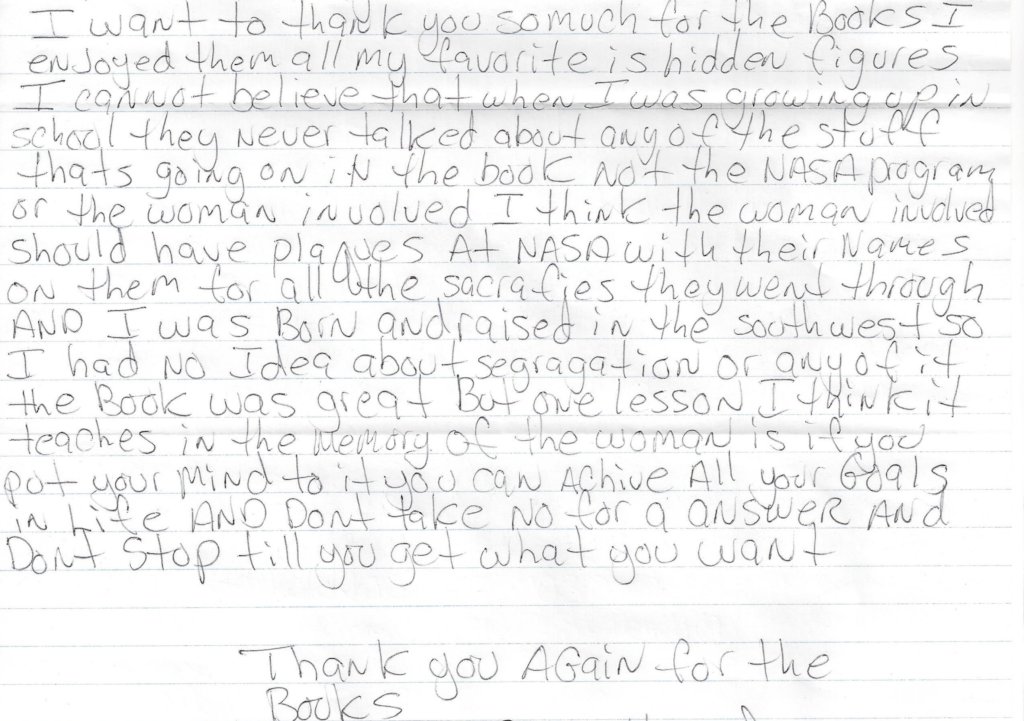 I want to thank you so much for the Books I
enjoyed them all my favorite is hidden figures
I cannot believe that when I was growing up in
school they never talked about any of the stuff
thats going on in the book not the NASA program
or the woman involved I think the woman involved
should have plaques At NASA with their Names
on them for all the sacrafies they went through
AND I was Born and raised in the southwest so
I had no Idea about segragation or any of it
the Book was great But one lesson I think it
teaches in the memory of the woman is if you
put your mind to it you can Achive All your Goals
in Life AND Dont take No for a answer And
Dont Stop till you get what you want
Thank you AGain for the
Books